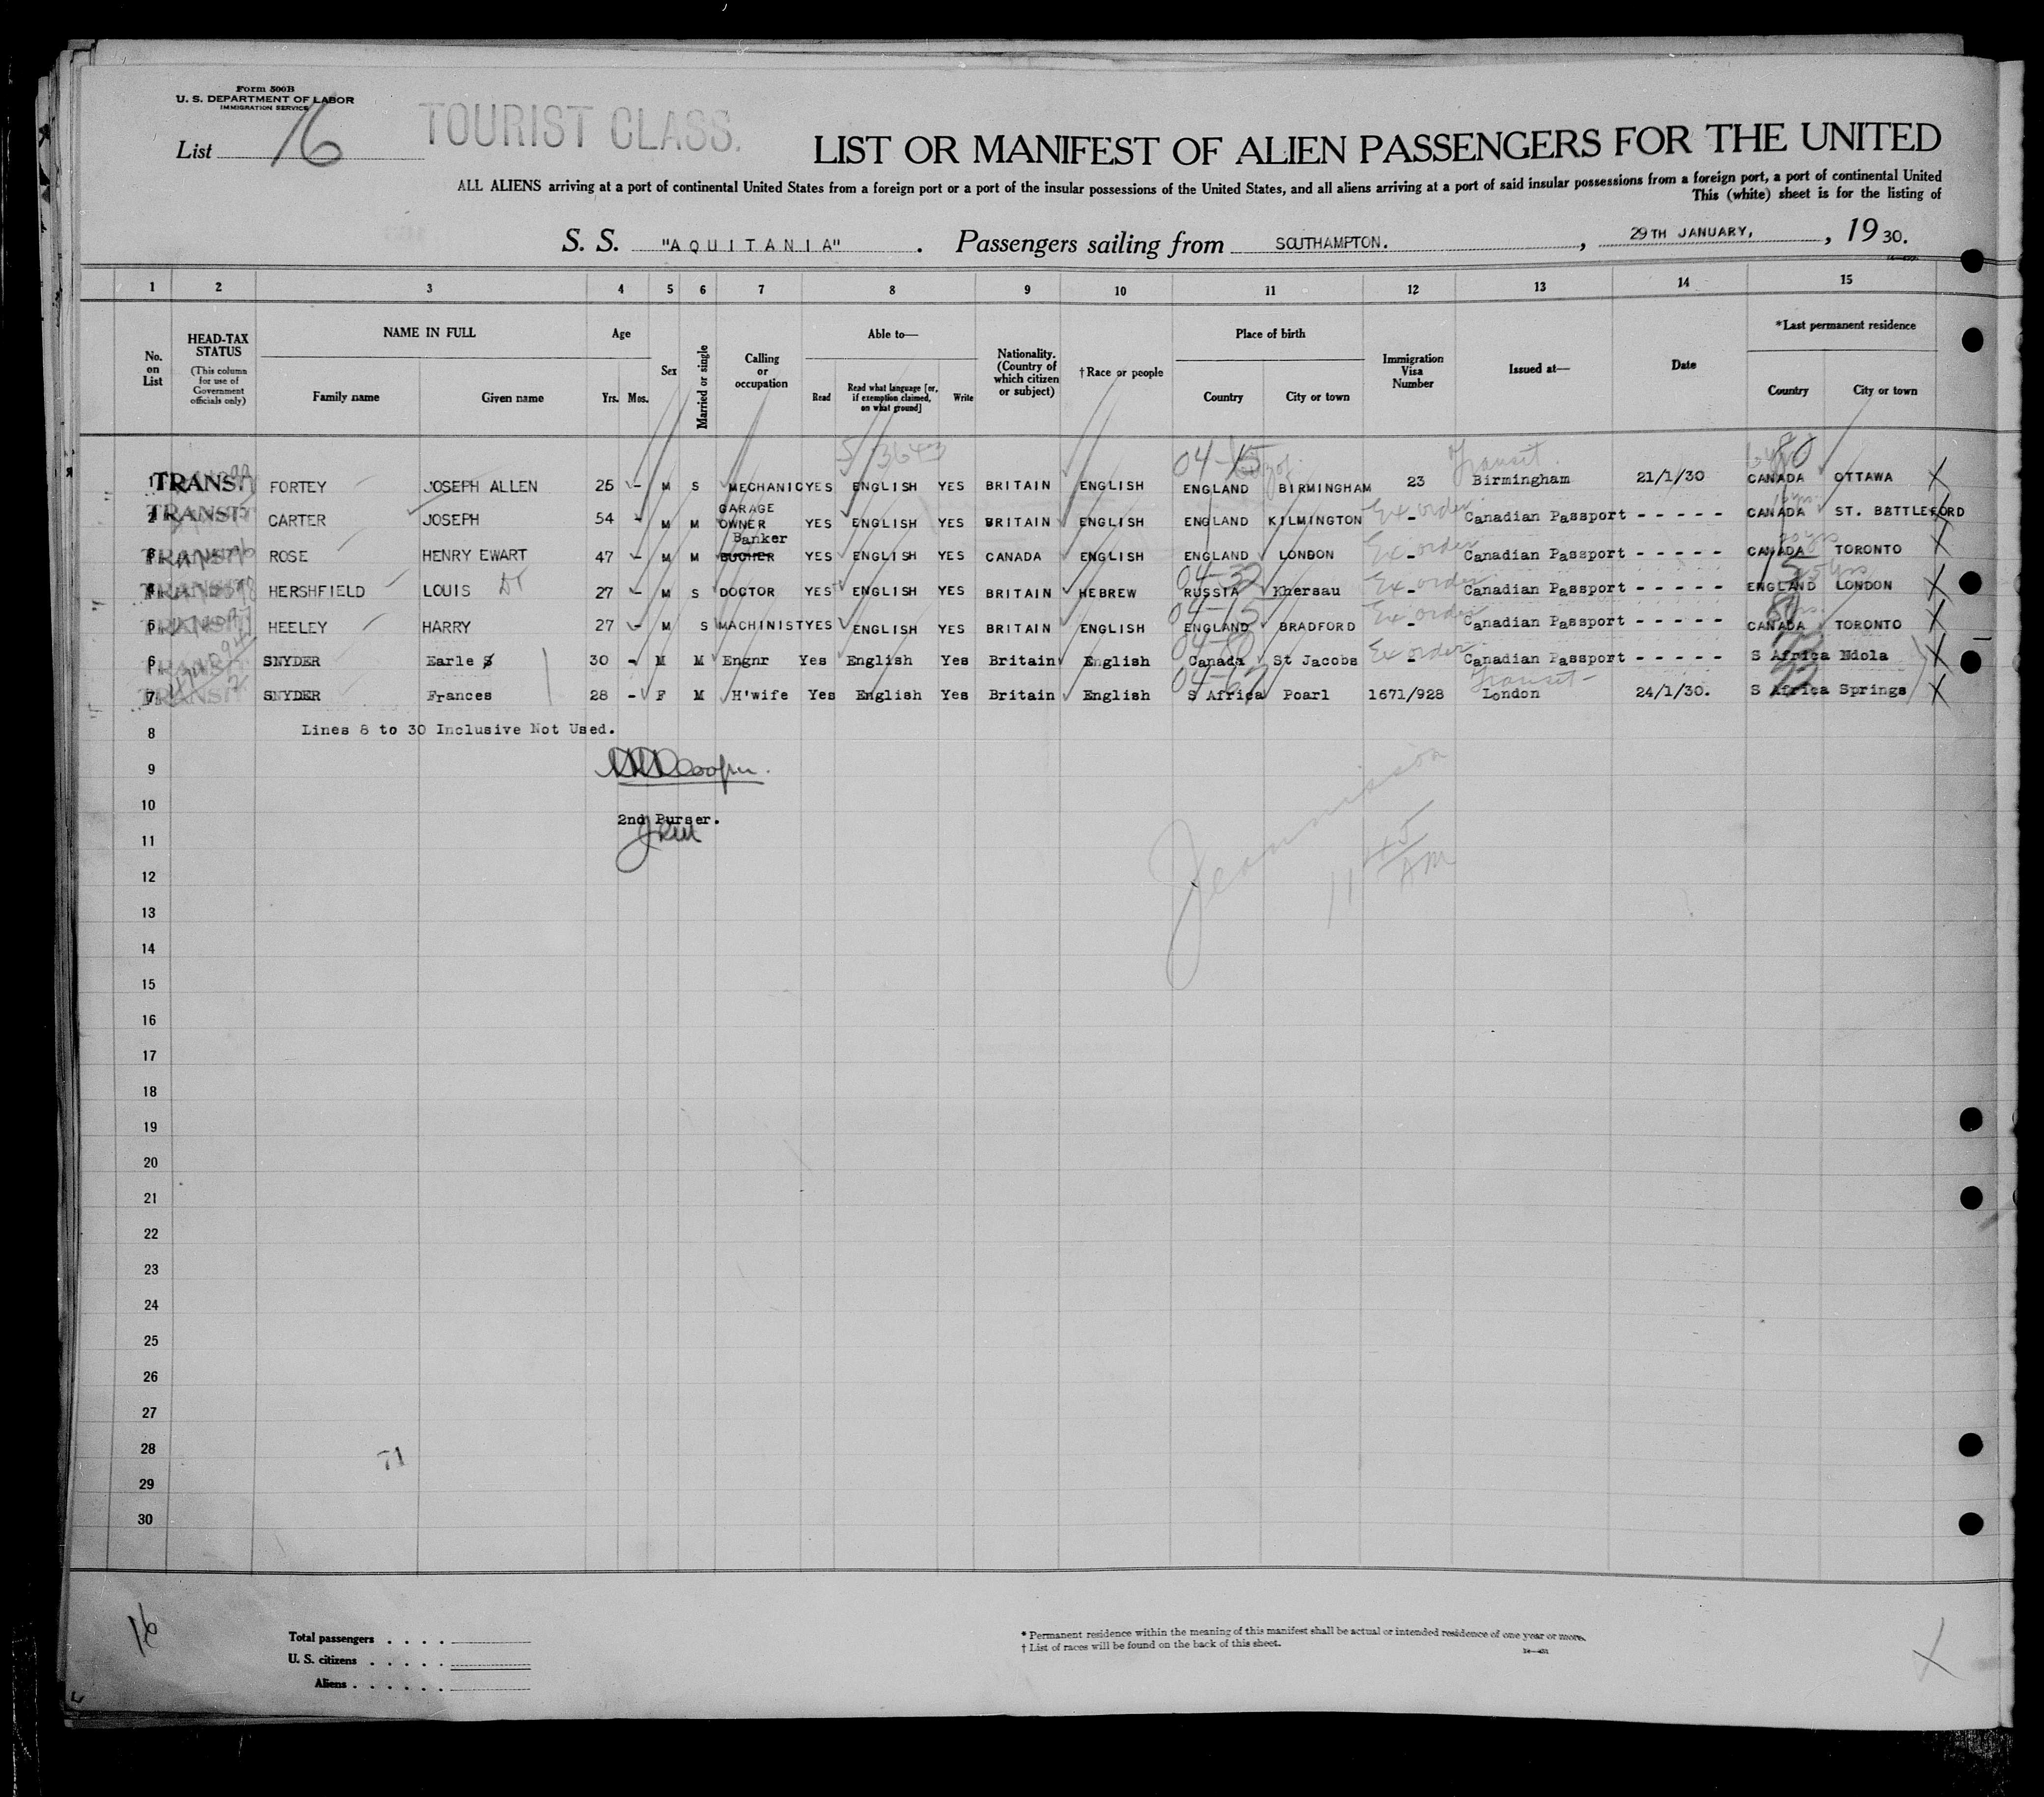 Form 500B
U. S. DEPARTMENT OF LABOR
IMMIGRATION SERVICE
List 16
TOURIST CLASS.
LIST OR MANIFEST OF ALIEN PASSENGERS FOR THE UNITED
ALL ALIENS arriving at a port of continental United States from a foreign port or a port of the insular possessions of the United States, and all aliens arriving at a port of said insular possessions from a foreign port, a port of continental United
This (white) sheet is for the listing of
S. S. "AQUITANIA" . Passengers sailing from SOUTHAMPTON. , 29TH JANUARY, , 19 30.
1 2 3 4 5 6 7 8 9 10 11 12 13 14 15
No. on List
HEAD-TAX STATUS
(This column for use of Government officials only)
NAME IN FULL
Family name Given name
Age
Yrs. Mos.
Sex
Married or single
Calling or occupation
Able to—
Read Read what language [or, if exemption claimed, on what ground] Write
Nationality. (Country of which citizen or subject)
†Race or people
Place of birth
Country City or town
Immigration Visa Number
Issued at—
Date
*Last permanent residence
Country City or town
5 3643 04-15 Transit. 80
1 TRANSIT FORTEY JOSEPH ALLEN 25 - M S MECHANIC YES ENGLISH YES BRITAIN ENGLISH ENGLAND BIRMINGHAM 23 Birmingham 21/1/30 CANADA OTTAWA X
2 TRANSIT CARTER JOSEPH 54 - M M GARAGE OWNER YES ENGLISH YES BRITAIN ENGLISH ENGLAND KILMINGTON Ex order - Canadian Passport - - - - - CANADA ST. BATTLEFORD X
3 TRANSIT ROSE HENRY EWART 47 - M M Banker BUCHER YES ENGLISH YES CANADA ENGLISH ENGLAND LONDON Ex order - Canadian Passport - - - - - CANADA TORONTO X
04-32 15
TRANSIT HERSHFIELD LOUIS 27 - M S DOCTOR YES ENGLISH YES BRITAIN HEBREW RUSSIA Khersau Ex order - Canadian Passport - - - - - ENGLAND LONDON X
04-15
5 TRANSIT HEELEY HARRY 27 - M S MACHINIST YES ENGLISH YES BRITAIN ENGLISH ENGLAND BRADFORD Ex order - Canadian Passport - - - - - CANADA TORONTO X
04-80
6 TRANSIT SNYDER Earle S 30 - M M Engnr Yes English Yes Britain English Canada St Jacobs Ex order - Canadian Passport - - - - - S Africa Ndola X
04-67 Transit-
7 TRANSIT SNYDER Frances 28 - F M H'wife Yes English Yes Britain English S Africa Poarl 1671/928 London 24/1/30. S Africa Springs X
8 Lines 8 to 30 Inclusive Not Used.
9
10
2nd Purser.
11
11 45 AM
12
13
14
15
16
17
18
19
20
21
22
23
24
25
26
27
28
71
29
30
16
Total passengers . . . .
U. S. citizens . . . . .
Aliens . . . . . .
* Permanent residence within the meaning of this manifest shall be actual or intended residence of one year or more.
† List of races will be found on the back of this sheet.